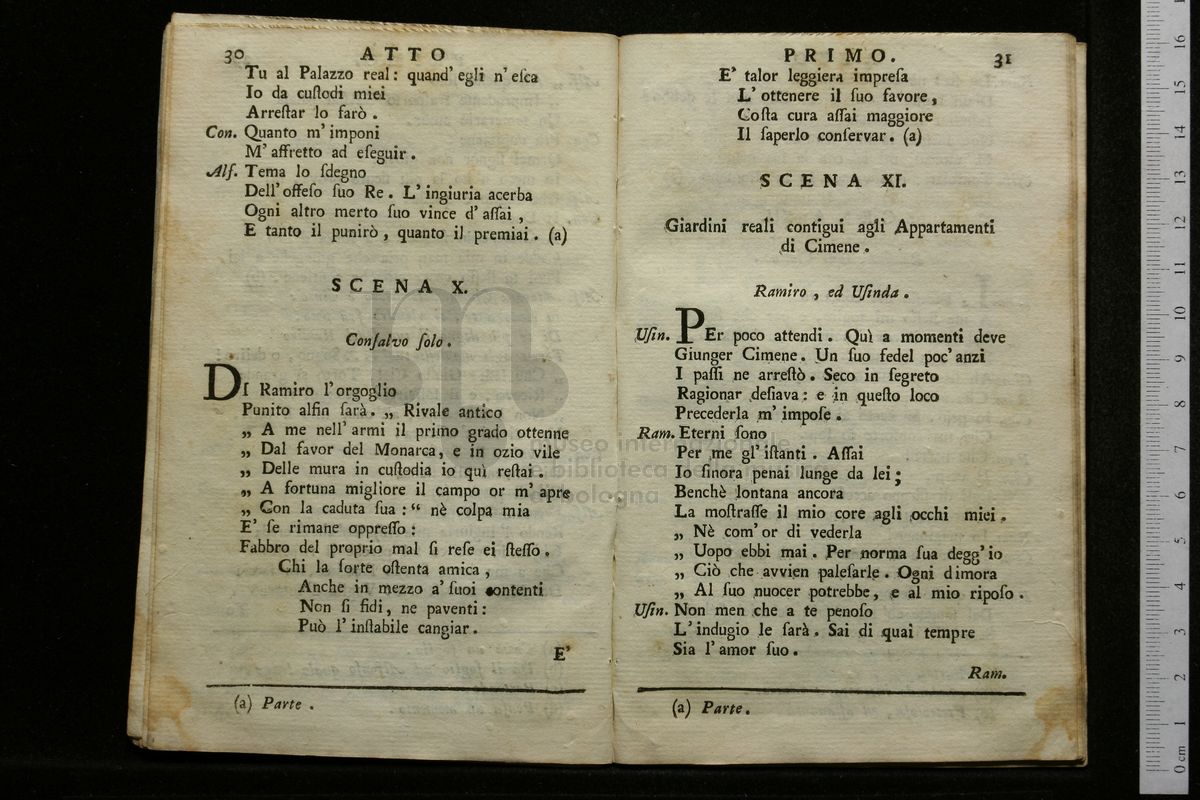 30 ATTO
Tu al Palazzo real: quand' egli n' eſca
Io da cuſtodi miei
Arreſtar lo farò.
Con. Quanto m' imponi
M' affretto ad eſeguir.
Alf. Tema lo ſdegno
Dell' offeſo ſuo Re. L' ingiuria acerba
Ogni altro merto ſuo vince d' aſſai,
E tanto il punirò, quanto il premiai. (a)
SCENA X.
Conſalvo ſolo.
DI Ramiro l' orgoglio
Punito alfin ſarà. „ Rivale antico
„ A me nell' armi il primo grado ottenne
„ Dal favor del Monarca, e in ozio vile
„ Delle mura in cuſtodia io quì reſtai.
„ A fortuna migliore il campo or m' apre
„ Con la caduta ſua: “ nè colpa mia
E' ſe rimane oppreſſo:
Fabbro del proprio mal ſi reſe ei ſteſſo.
Chi la ſorte oſtenta amica,
Anche in mezzo a' ſuoi contenti
Non ſi fidi, ne paventi:
Può l' inſtabile cangiar.
E'
(a) Parte.
PRIMO. 31
E' talor leggiera impreſa
L' ottenere il ſuo favore,
Coſta cura aſſai maggiore
Il ſaperlo conſervar. (a)
SCENA XI.
Giardini reali contigui agli Appartamenti
di Cimene.
Ramiro, ed Uſinda.
Uſin. PEr poco attendi. Quì a momenti deve
Giunger Cimene. Un ſuo fedel poc' anzi
I paſſi ne arreſtò. Seco in ſegreto
Ragionar deſiava: e in queſto loco
Precederla m' impoſe.
Ram. Eterni ſono
Per me gl' iſtanti. Aſſai
Io ſinora penai lunge da lei;
Benchè lontana ancora
La moſtraſſe il mio core agli occhi miei.
„ Nè com' or di vederla
„ Uopo ebbi mai. Per norma ſua degg' io
„ Ciò che avvien paleſarle. Ogni dimora
„ Al ſuo nuocer potrebbe, e al mio ripoſo.
Uſin. Non men che a te penoſo
L' indugio le ſarà. Sai di quai tempre
Sia l' amor ſuo.
Ram.
(a) Parte.
museo internazionale
e biblioteca della musica
di bologna
0 cm 1 2 3 4 5 6 7 8 9 10 11 12 13 14 15 16